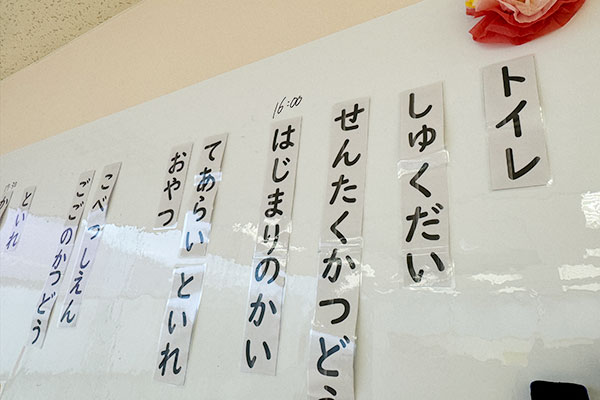 トイレ
しゅくだい
せんたくかつどう
16:00
はじまりのかい
てあらい
といれ
おやつ
こべつしえん
ごごのかつどう
といれ
か